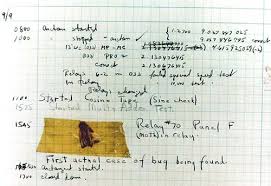 9/9
0800 Antan started
1000 " stopped - antan ✓ { 1.2700 9.037 847 025
9.037 846 995 correct
13" uc MP - MC
033 PRO 2 2.130476415
correct 2.130676415
Relays 6-2 in 033 failed special speed test
in Relay " test
Relays changed
1100 Started Cosine Tape (Sine check)
1525 Started Multi Adder Test.
1545 Relay #70 Panel F
(moth) in relay.
First actual case of bug being found.
antangent started.
1700 closed down.